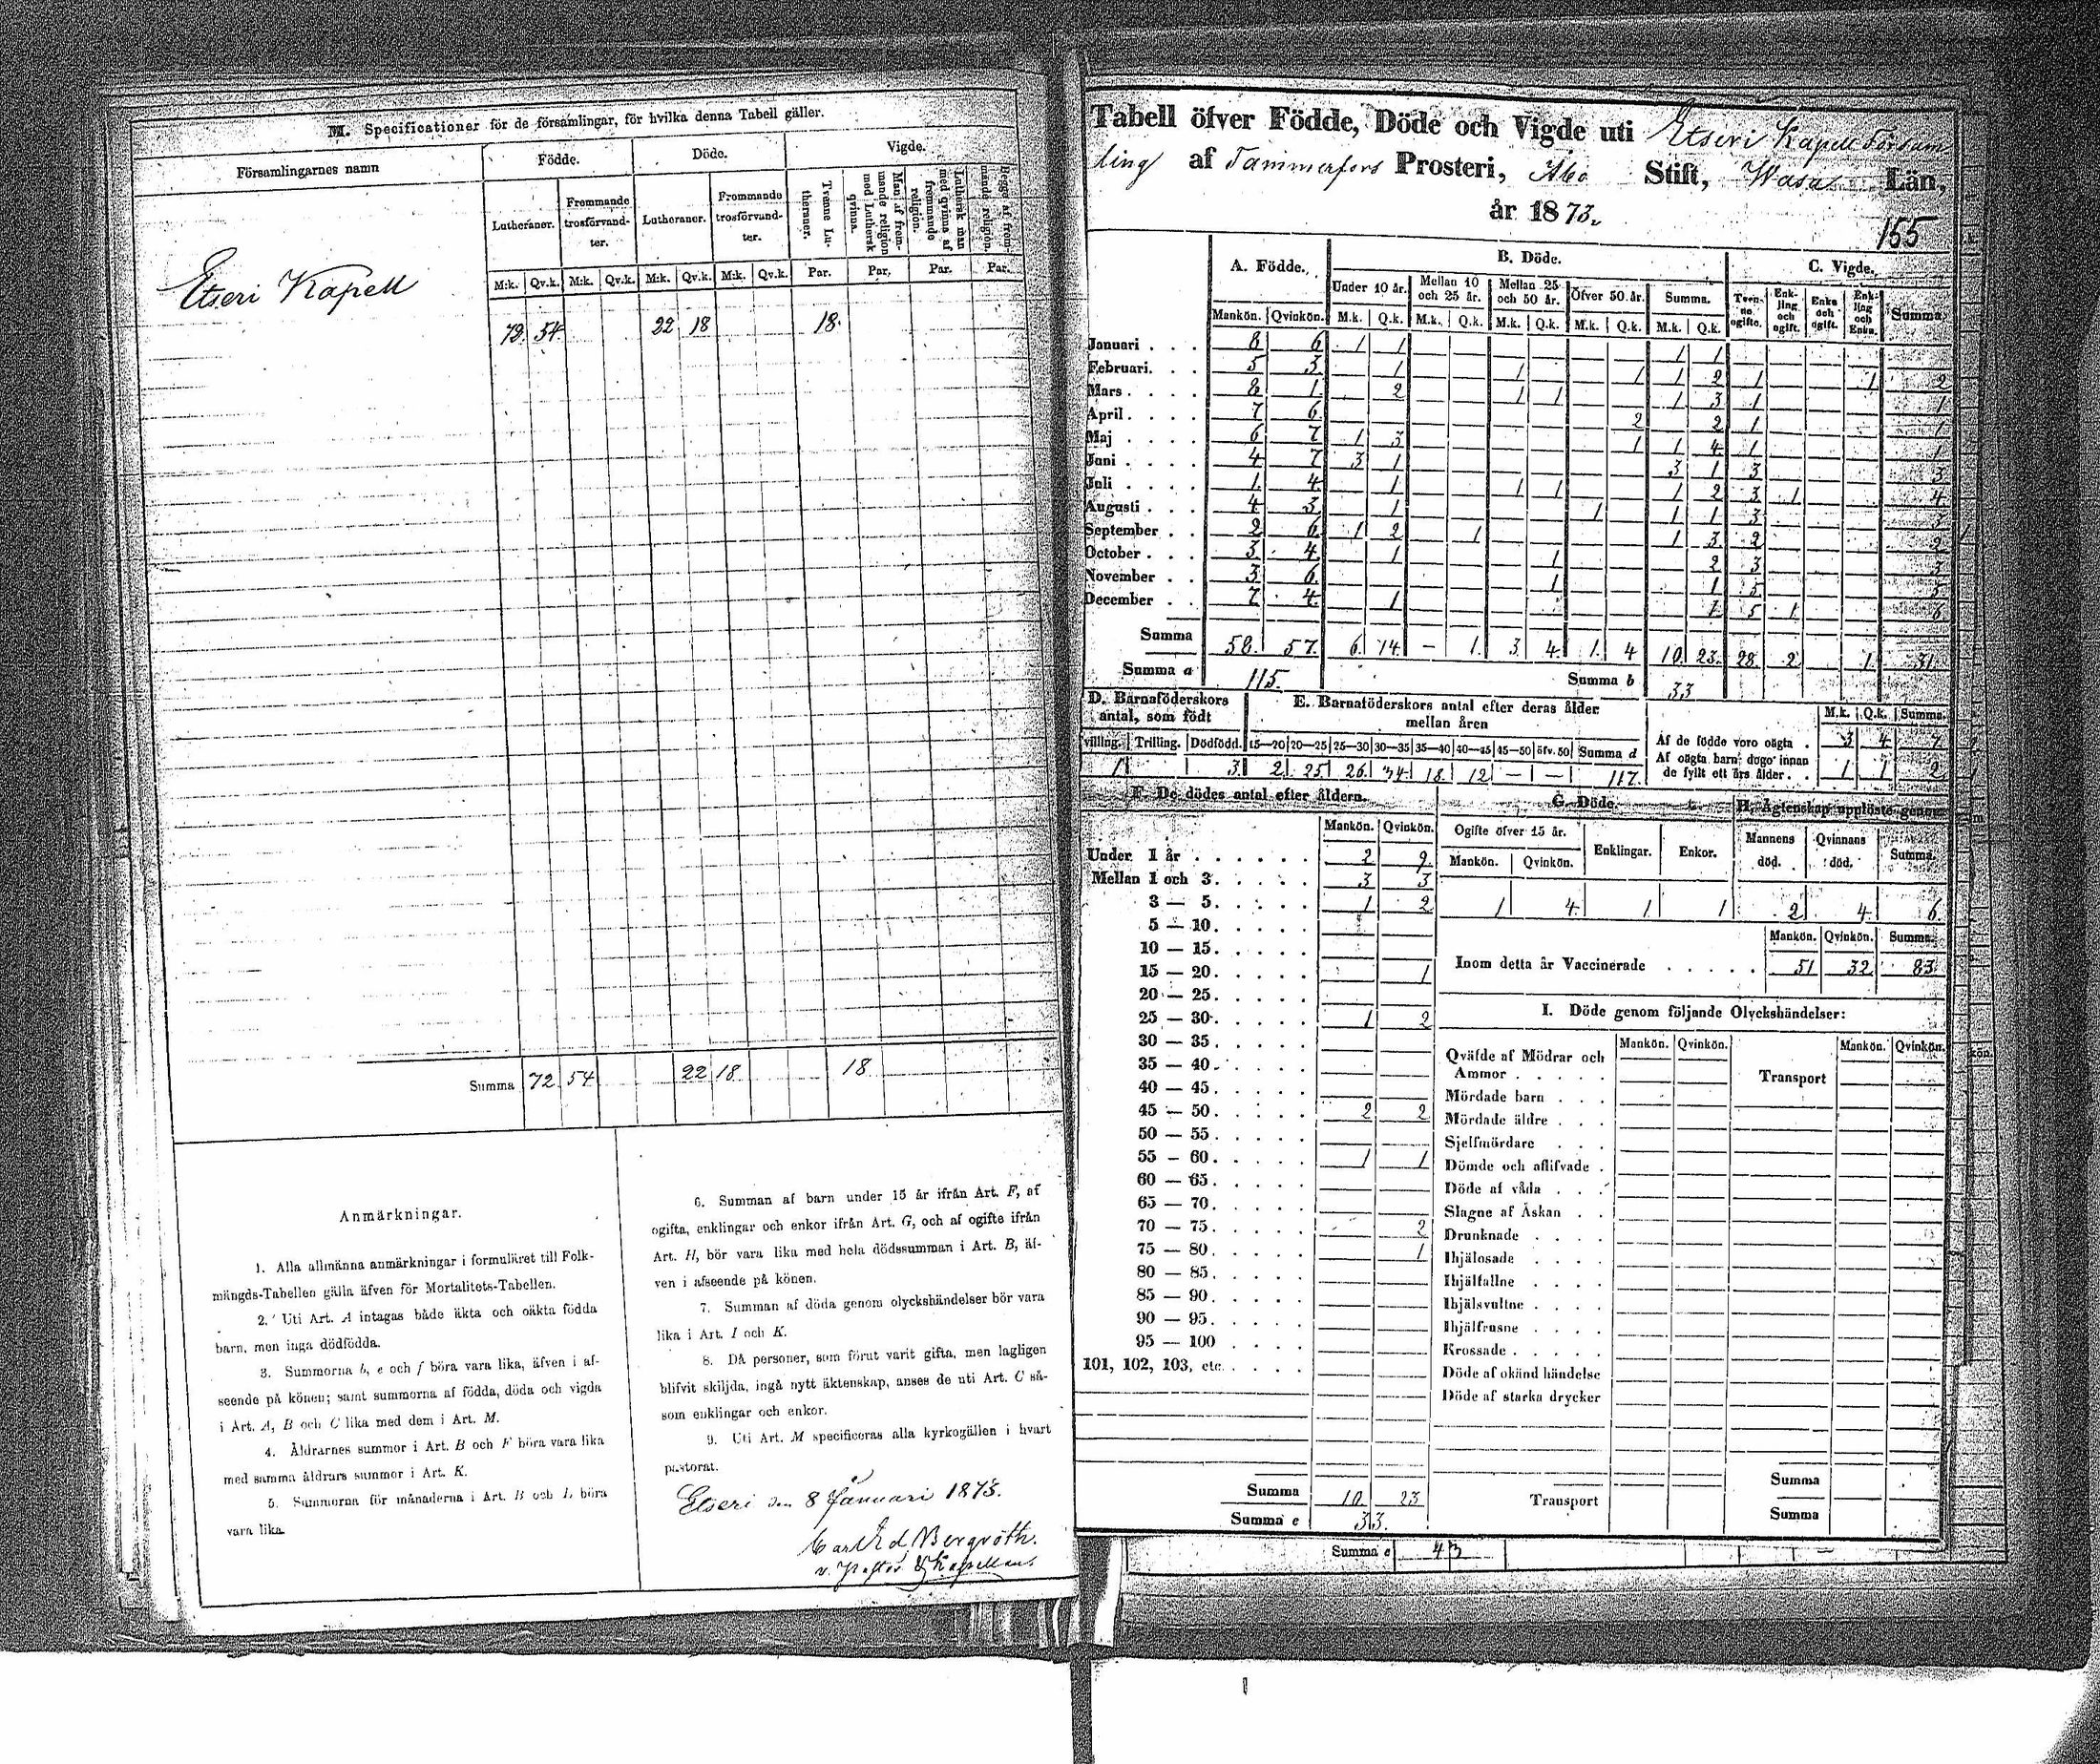 M. Specificationer för de församlingar, för hvilka denna Tabell gäller.
Församlingarnes namn Födde. Döde. Vigde.
Lutheraner. Frommande trosförvandter. Lutheraner. Frommande trosförvandter. Tvenne Lutheraner. Man af frommande religion med Luthersk qvinna. Luthersk man med qvinna af frommande religion. Begge af frommande religion.
M:k. Qv.k. M:k. Qv.k. M:k. Qv.k. M:k. Qv.k. Par. Par. Par. Par.
Etseri Kapell
72. 54. 22 18 18.
Summa 72 54 22 18 18
Anmärkningar.
1. Alla allmänna anmärkningar i formuläret till Folk-
mängds-Tabellen gälla äfven för Mortalitets-Tabellen.
2. Uti Art. A intagas både äkta och oäkta födda
barn, men inga dödfödda.
3. Summorna b, e och f böra vara lika, äfven i af-
seende på könen; samt summorna af födda, döda och vigda
i Art. A, B och C lika med dem i Art. M.
4. Åldrarnes summor i Art. B och F böra vara lika
med samma åldrars summor i Art. K.
5. Summorna för månaderna i Art. B och L böra
vara lika.
6. Summan af barn under 15 år ifrån Art. F, af
ogifta, enklingar och enkor ifrån Art. G, och af ogifte ifrån
Art. H, bör vara lika med hela dödssumman i Art. B, äf-
ven i afseende på könen.
7. Summan af döda genom olyckshändelser bör vara
lika i Art. I och K.
8. Då personer, som förut varit gifta, men lagligen
blifvit skiljda, ingå nytt äktenskap, anses de uti Art. C så-
som enklingar och enkor.
9. Uti Art. M specificeras alla kyrkogällen i hvart
pastorat.
Etseri den 8 Januari 1873.
Carl Ed. Bergroth.
v. Pastor & Kapellan.
Tabell öfver Födde, Döde och Vigde uti Etseri Kapell Försam
ling af Tammerfors Prosteri, Åbo Stift, Wasa Län,
år 1873.
155
A. Födde. B. Döde. C. Vigde.
Under 10 år. Mellan 10 och 25 år. Mellan 25 och 50 år. Öfver 50 år. Summa. Tvenne ogifte. Enkling och ogift. Enka och ogift. Enkling och Enka. Summa.
Mankön. Qvinkön. M.k. Q.k. M.k. Q.k. M.k. Q.k. M.k. Q.k. M.k. Q.k.
Januari . . . 8 6 1 1 1 1
Februari. . . 5 3 1 1 1 1 2 1 1 2
Mars . . . . 8 1 2 1 1 1 3 1 1
April . . . . 7 6 2 2 1 1
Maj . . . . 6 7 1 3 1 1 4 1 1
Juni . . . . 4 7 3 1 3 1 3 3
Juli . . . . 1 4 1 1 1 1 2 3 1 4
Augusti . . . 4 3 1 1 1 1 3 3
September . . 2 6 1 2 1 1 3 2 2
October . . . 3 4 1 1 2 3 3
November . . 3 6 1 1 5 5
December . . 7 4 1 1 5 1 6
Summa 58. 57. 6. 14. - 1. 3. 4. 1. 4 10. 23. 28. 2 1. 31.
Summa a 115. Summa b 33
D. Barnaföderskors antal, som födt
villing. Trilling. Dödfödd.
1 3
E. Barnaföderskors antal efter deras ålder mellan åren
15—20 20—25 25—30 30—35 35—40 40—45 45—50 öfv. 50 Summa d
2 25 26 34 18 12 — — 117.
M.k. Q.k. Summa.
Af de födde voro oägta . 3 4 7
Af oägta barn dogo innan
de fyllt ett års ålder . . 1 1 2
F. De dödes antal efter åldern.
Mankön. Qvinkön.
Under 1 år . . . . . . 2 9
Mellan 1 och 3. . . . . 3 3
3 — 5. . . . . 1 2
5 — 10. . . . .
10 — 15. . . . .
15 — 20. . . . . 1
20 — 25. . . . .
25 — 30. . . . . 1 2
30 — 35. . . . .
35 — 40. . . . .
40 — 45. . . . .
45 — 50. . . . . 2 2
50 — 55. . . . .
55 — 60. . . . . 1 1
60 — 65. . . . .
65 — 70. . . . .
70 — 75. . . . . 2
75 — 80. . . . . 1
80 — 85. . . . .
85 — 90. . . . .
90 — 95. . . . .
95 — 100 . . . .
101, 102, 103, etc. . . . .
Summa 10 23
Summa e 33.
G. Döde
Ogifte öfver 15 år. Enklingar. Enkor.
Mankön. Qvinkön.
1 4 1 1
H. Ägtenskap upplöste genom
Mannens död. Qvinnans död. Summa.
2 4 6
Mankön. Qvinkön. Summa.
Inom detta år Vaccinerade . . . . . 51 32 83.
I. Döde genom följande Olyckshändelser:
Mankön. Qvinkön. Mankön. Qvinkön.
Qväfde af Mödrar och
Ammor . . . . . Transport
Mördade barn . . .
Mördade äldre . . .
Sjelfmördare . . .
Dömde och aflifvade .
Döde af våda . . .
Slagne af Åskan . .
Drunknade . . . .
Ihjälosade . . . .
Ihjälfallne . . . .
Ihjälsvultne . . . .
Ihjälfrusne . . . .
Krossade . . . . .
Döde af okänd händelse
Döde af starka drycker
Summa
Transport
Summa
Summa e 43